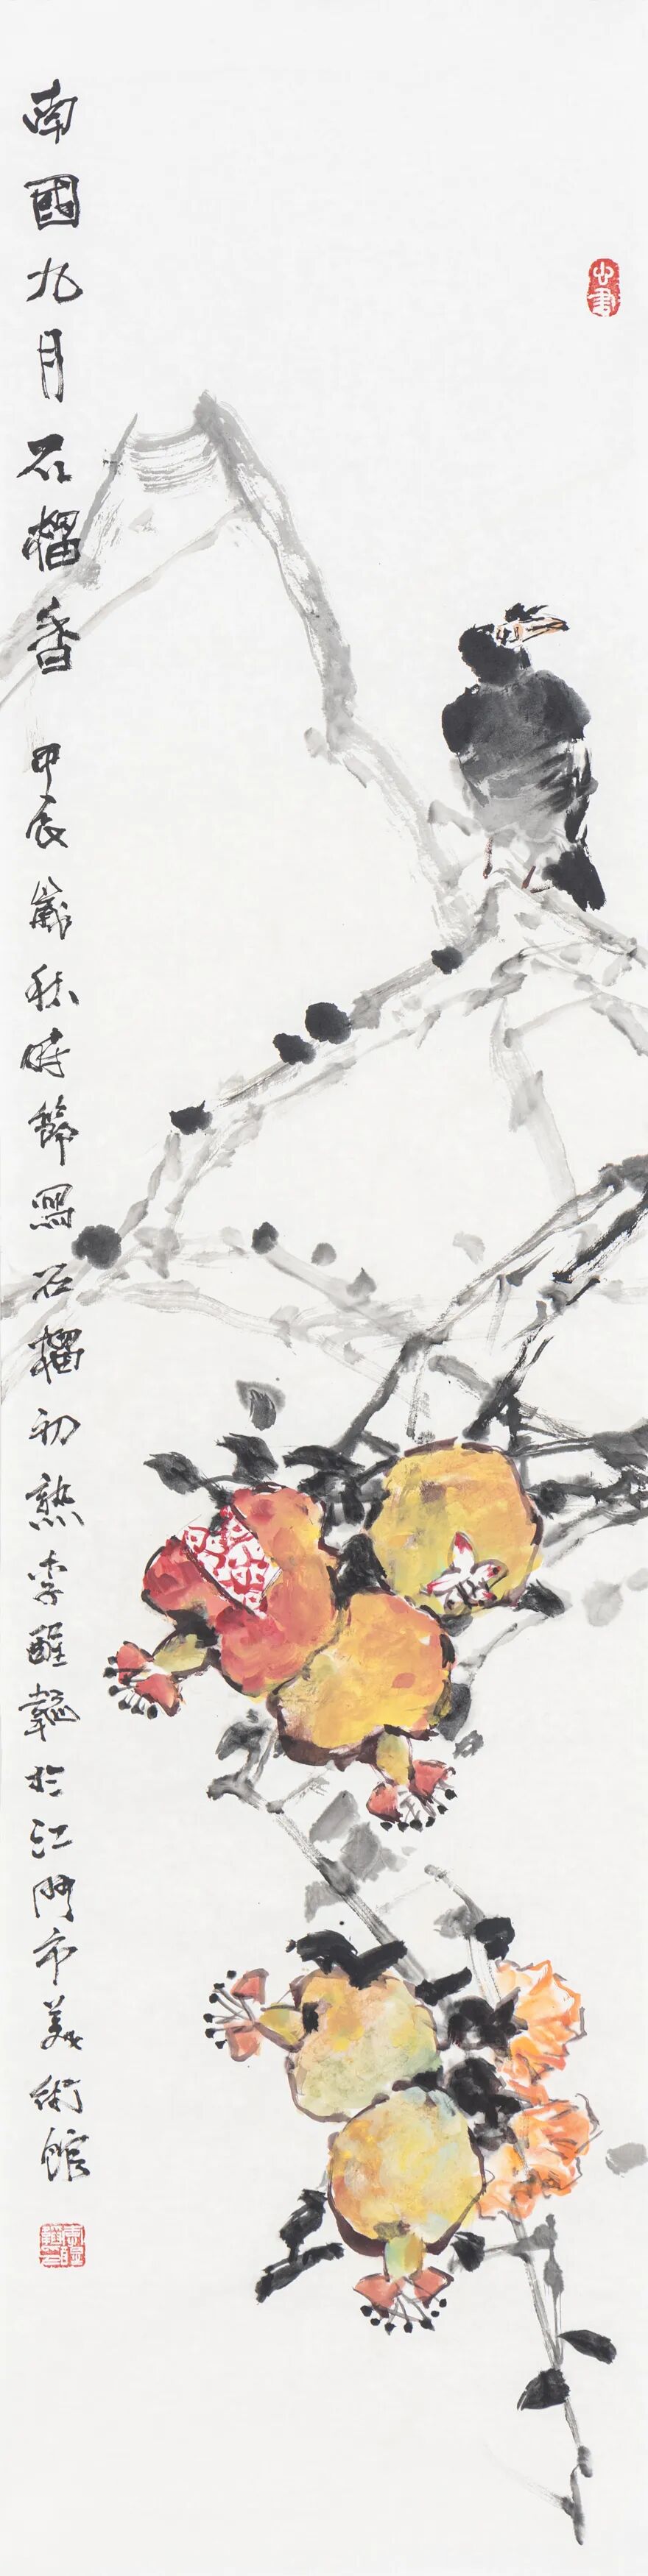 南國九月石榴香 甲辰歲秋時節寫石榴初熟李醒韜於江門市美術館